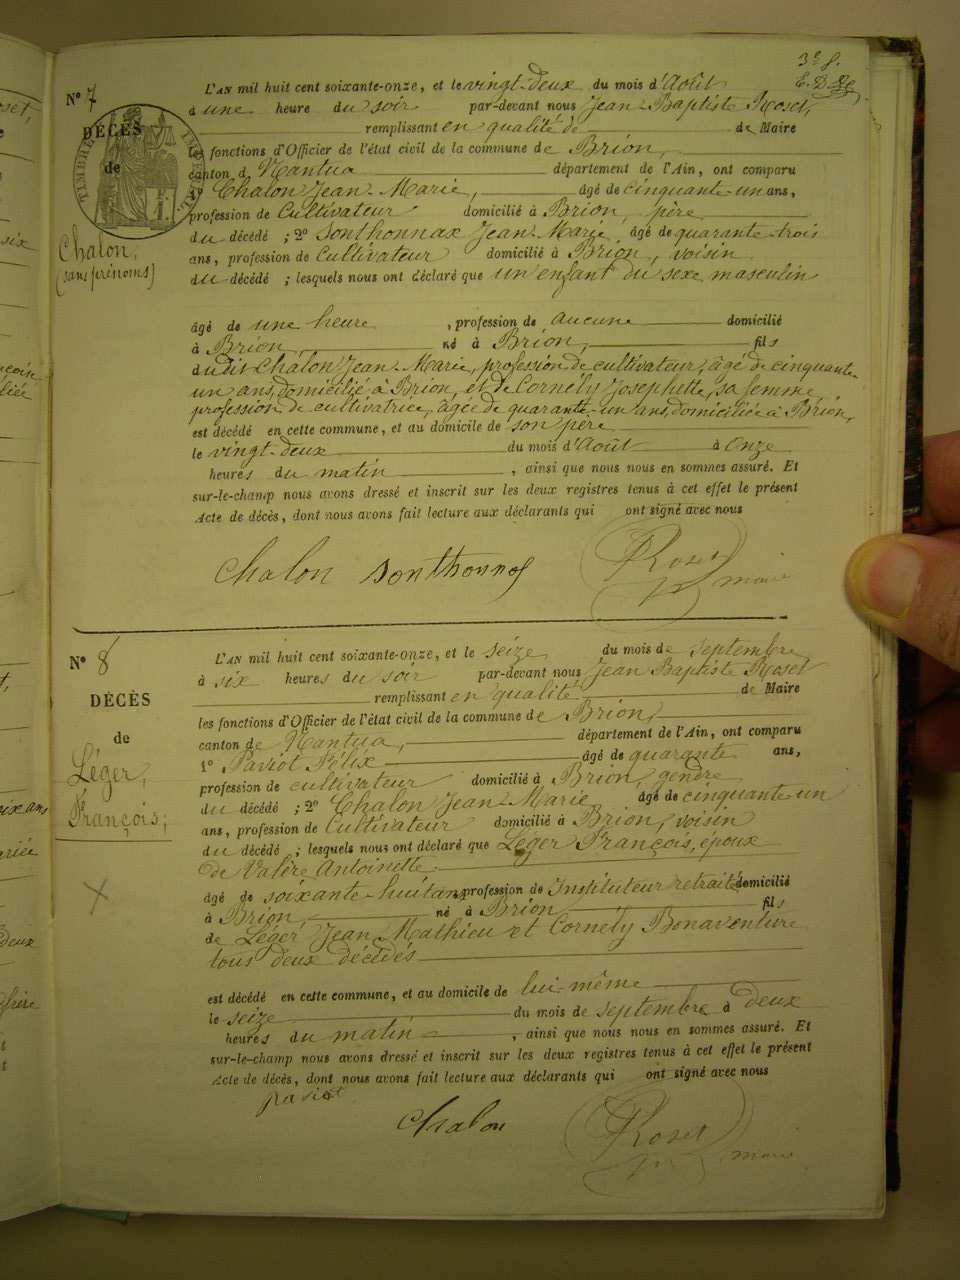 3e f.
E. D.
N° 7
DÉCÈS
de
Chalon,
(sans prénoms)
TIMBRE IMPÉRIAL
L'AN mil huit cent soixante-onze, et le vingt-deux du mois d'Août
à une heure du soir par-devant nous Jean Baptiste Roset,
remplissant en qualité de de Maire
les fonctions d'Officier de l'état civil de la commune de Brion,
canton de Nantua département de l'Ain, ont comparu
1° Chalon Jean-Marie, âgé de cinquante-un ans,
profession de Cultivateur domicilié à Brion, père
du décédé ; 2° Sonthonnax Jean-Marie âgé de quarante-trois
ans, profession de Cultivateur domicilié à Brion, voisin
du décédé ; lesquels nous ont déclaré que un enfant du sexe masculin
âgé de une heure , profession de aucune domicilié
à Brion, né à Brion, fils
dudit Chalon Jean-Marie, profession de cultivateur, âgé de cinquante-
un ans, domicilié à Brion, et de Cornely Josephette, sa femme,
profession de cultivatrice, âgée de quarante-un ans, domiciliée à Brion,
est décédé en cette commune, et au domicile de son père
le vingt-deux du mois d'Août à Onze
heures du matin , ainsi que nous nous en sommes assuré. Et
sur-le-champ nous avons dressé et inscrit sur les deux registres tenus à cet effet le présent
Acte de décès, dont nous avons fait lecture aux déclarants qui ont signé avec nous
Chalon Sonthonnax Roset
maire
N° 8
DÉCÈS
de
Léger,
François;
L'AN mil huit cent soixante-onze, et le seize du mois de Septembre
à six heures du soir par-devant nous Jean Baptiste Roset
remplissant en qualité de Maire
les fonctions d'Officier de l'état civil de la commune de Brion,
canton de Nantua, département de l'Ain, ont comparu
1° Paviot Félix âgé de quarante ans,
profession de cultivateur domicilié à Brion, gendre
du décédé ; 2° Chalon Jean-Marie, âgé de cinquante-un
ans, profession de Cultivateur domicilié à Brion, voisin
du décédé ; lesquels nous ont déclaré que Léger François, époux
de Valère Antoinette
âgé de soixante-huit ans profession de Instituteur retraité domicilié
à Brion, né à Brion fils
de Léger Jean Mathieu et Cornely Bonaventure
tous deux décédés
est décédé en cette commune, et au domicile de lui-même
le seize du mois de septembre à deux
heures du matin , ainsi que nous nous en sommes assuré. Et
sur-le-champ nous avons dressé et inscrit sur les deux registres tenus à cet effet le présent
Acte de décès, dont nous avons fait lecture aux déclarants qui ont signé avec nous
paviot
Chalon Roset
maire